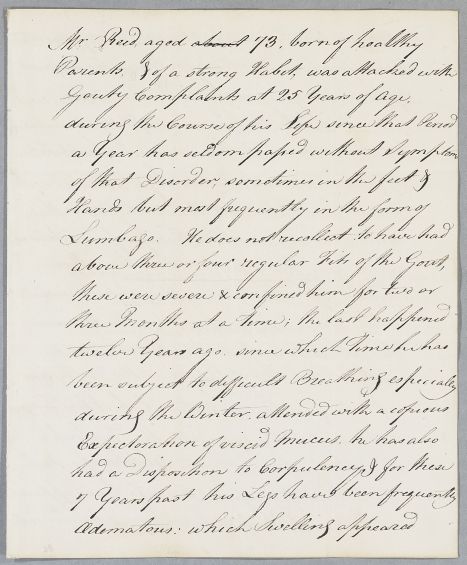 Mr Reid, aged about 73, born of healthy
Parents, & of a strong Habit, was attacked with
Gouty Complaints at 25 Years of age,
during the Course of his Life since that Period
a Year has seldom passed without Symptom
of that Disorder, sometimes in the feet &
Hands but most frequently in the form of
Lumbago. He does not recollect to have had
above three or four regular Fits of the Gout,
these were severe & confined him for two or
three Months at a time; the last happened
twelve Years ago. since which Time he has
been subject to difficult Breathing especially
during the Winter, attended with a copious
Expectoration of viscid Mucus. he has also
had a Disposition to Corpulency, & for these
7 Years past his Legs have been frequently
Œdematous: which Swelling appeared